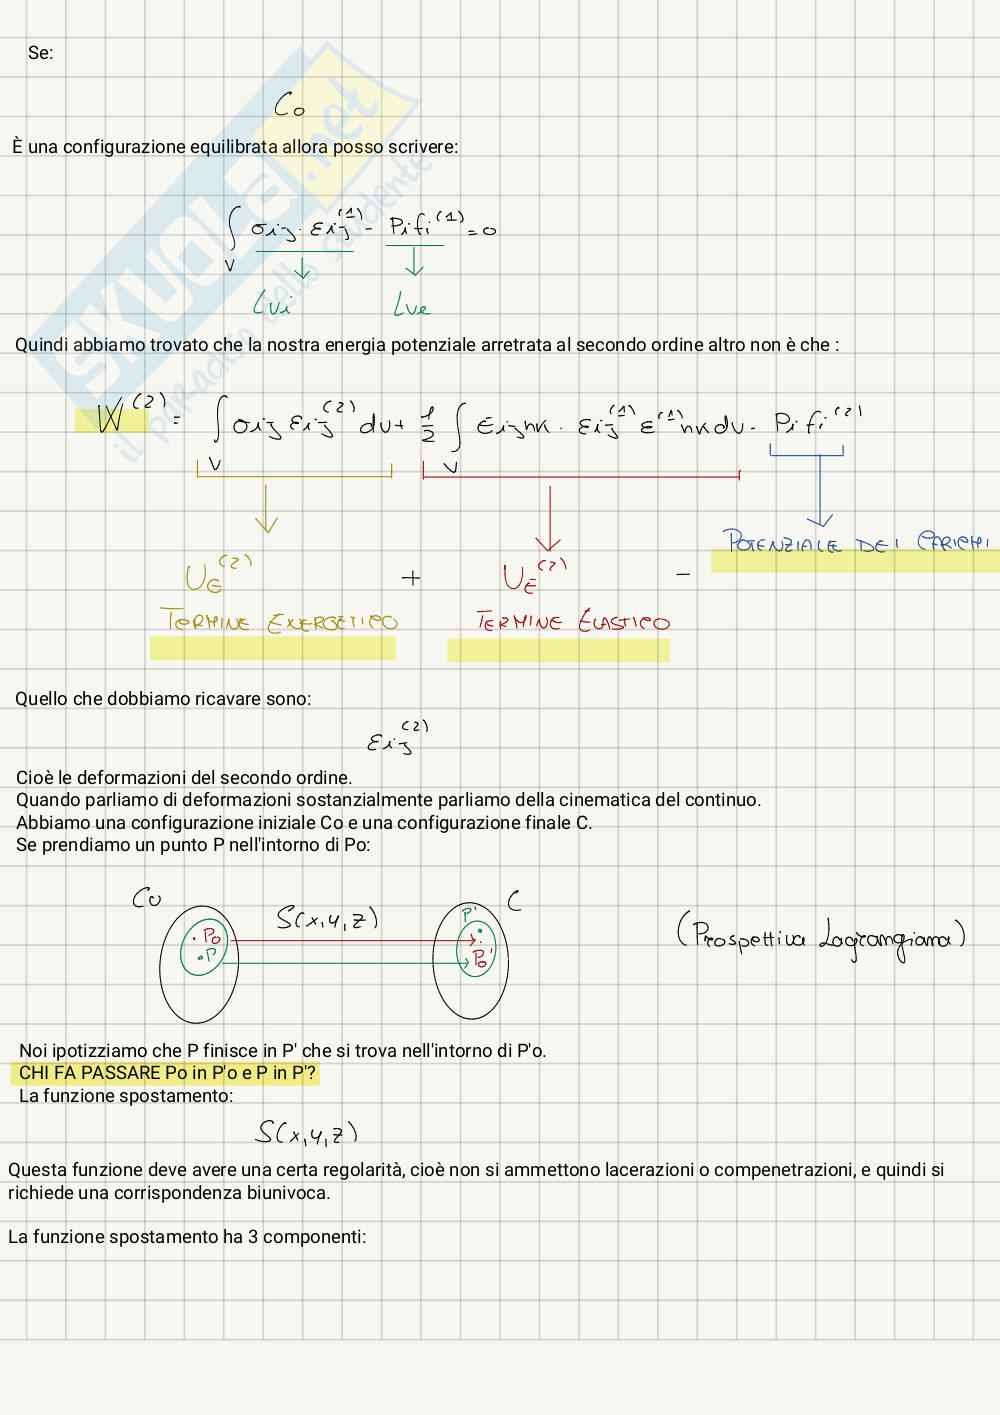 Se:
Co
È una configurazione equilibrata allora posso scrivere:
∫V σij · εij^(1) - Pi fi^(1) = 0
Lvi Lve
Quindi abbiamo trovato che la nostra energia potenziale arretrata al secondo ordine altro non è che :
W^(2) = ∫V σij εij^(2) dv + 1/2 ∫V Eijhk · εij^(1) ε^(1)hk dv - Pi fi^(2)
POTENZIALE DEI CARICHI
UG^(2) + UE^(2) -
TERMINE ENERGETICO TERMINE ELASTICO
Quello che dobbiamo ricavare sono:
εij^(2)
Cioè le deformazioni del secondo ordine.
Quando parliamo di deformazioni sostanzialmente parliamo della cinematica del continuo.
Abbiamo una configurazione iniziale Co e una configurazione finale C.
Se prendiamo un punto P nell'intorno di Po:
Co S(x,y,z) C
Po P P' Po'
(Prospettiva Lagrangiana)
Noi ipotizziamo che P finisce in P' che si trova nell'intorno di P'o.
CHI FA PASSARE Po in P'o e P in P'?
La funzione spostamento:
S(x,y,z)
Questa funzione deve avere una certa regolarità, cioè non si ammettono lacerazioni o compenetrazioni, e quindi si
richiede una corrispondenza biunivoca.
La funzione spostamento ha 3 componenti:
SKUOLA.net
il paradiso dello studente